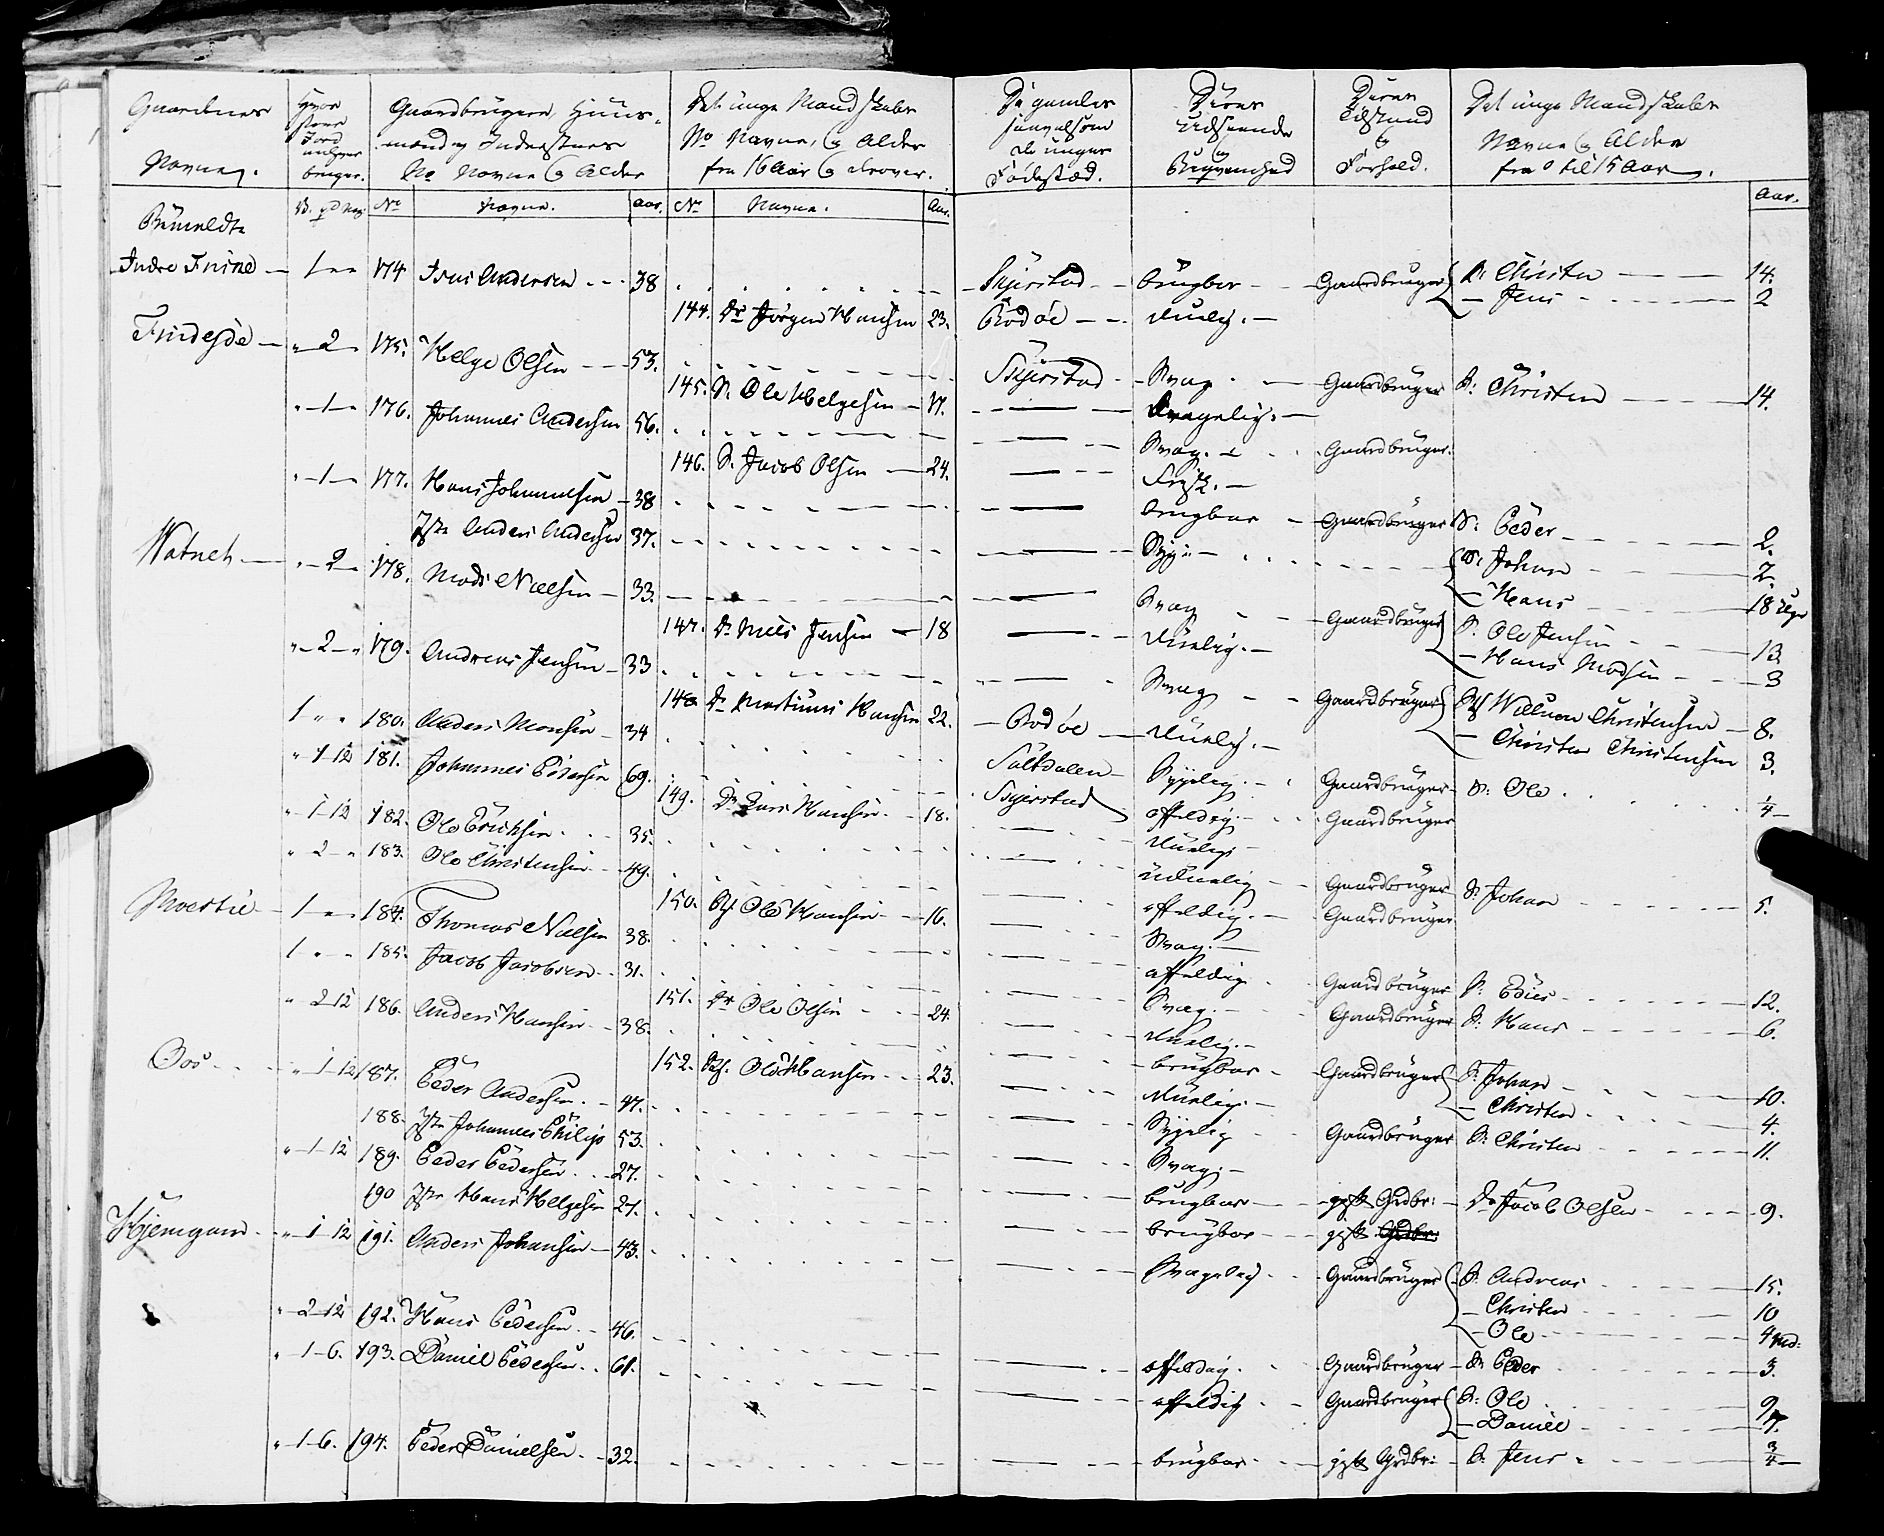 Gaardenes Navne. | Hvor stor Jord enhver bruger. | Gaardbrugere, Huus-mænd og Inderstners No Navne og Alder | Det unge Mandskabs No Navne, og Alder fra 16 Aar og derover. | De gamles saavelsom de unges Fødested. | Deres Udseende og Beqvemhed | Deres Tilstand og Forhold. | Det unge Mandskabs Navne og Alder fra 0 til 15 Aar.
No | Navne. | Aar. | No | Navne. | Aar. | Aar.
Indre | 1 | 174 | Andersen | 38 | Skjerstad | brugbar | Gaardbruger | S: Christen | 14.
Jens | 2
144. | Dr Jørgen Hansen | 23. | Bodøe | duelig.
2 | 175. | Helge Olsen | 53. | Skjerstad | Svag | Gaardbruger | S: Christen | 14.
145. | S. Ole Helgesen | 17. | svagelig.
1 | 176. | Johannes Andersen | 56. | Svag. | Gaardbruger.
146. | S. Jacob Olsen | 24. | Frisk.
1 | 177. | Hans Johannesen | 38 | brugbar | Gaardbruger | S: Peder | 2.
Anders Andersen | 37. | Syg | S: Johan | 2.
Hans | 18 Uger
Watnet | 2 | 178. | Mads Nielsen | 33. | Svag | Gaardbruger | S. Ole Jensen | 13
Hans Madsen | 3
147. | Dr Niels Jensen | 18 | duelig.
2 | 179. | Andreas Jensen | 33 | Svag | Gaardbruger | Willum Christensen | 8.
Christen Christensen | 3.
148. | Dr Martinus Hansen | 22. | Bodøe | duelig.
1 | 180. | Anders Monsen | 34 | Saltdalen | Sygelig. | Gaardbruger | S: Ole | 1/4
1 12 | 181. | Johannes Pedersen | 69. | Skjerstad | affældig. | Gaardbruger
149. | Dr Lars Hansen | 18. | duelig
1 12 | 182. | Ole Erichsen | 35. | uduelig | Gaardbruger | S: Johan | 5.
2 | 183. | Ole Christensen | 49. | affældig. | Gaardbruger
150. | Ole Hansen | 16. | Svag.
1 | 184. | Thomas Nielsen | 38. | affældig | Gaardbruger | S: | 12.
1 | 185. | Jacob Jacobsen | 31. | Svag. | Gaardbruger | S. Hans | 6.
151. | Dr Ole Olsen | 24. | duelig.
2 12 | 186. | Anders Hansen | 38. | brugbar | Gaardbruger | S. Johan | 10.
Christen | 4.
152. | Ole Hansen | 23. | duelig.
Oos | 1 12 | 187. | Peder Andersen | 47. | Sygelig | Gaardbruger | S. Christen | 11.
188. | Johannes Philip | 53. | Svag.
1 12 | 189. | Peder Pedersen | 27. | brugbar | Grdbr: | Dr Jacob Olsen | 9.
190 | Hans Helgesen | 27. | brugbar | Grdbr:
Hjemgam | 1 12 | 191. | Anders Johansen | 43. | Svagelig | Gaardbruger | S. Andreas | 15.
Christen | 10
Ole | 4
2 12 | 192. | Hans Pedersen | 46. | affældig. | Gaardbruger | S. Peder | 3.
1 6. | 193. | Daniel Pedersen | 61. | affældig | Gaardbruger | S: Ole | 9
Daniel | 7.
1 6. | 194. | Peder Danielsen | 32. | brugbar | Grdbr: | S. Jens | 3/4